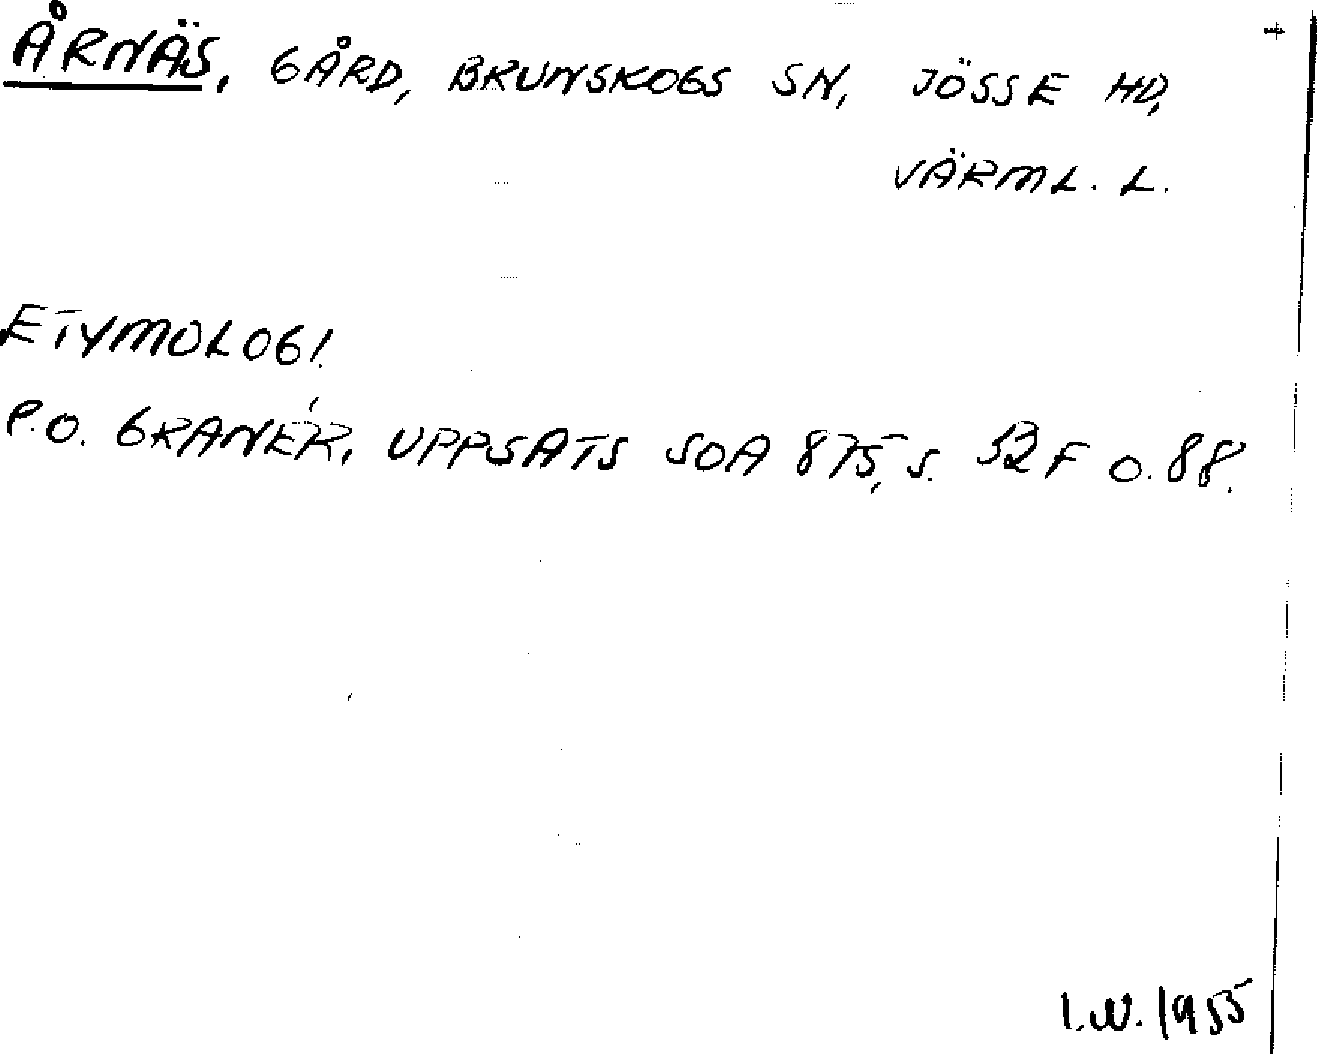 ÅRNÄS, GÅRD, BRUNSKOGS SN, JÖSSE HD,
VÄRML. L.
ETYMOLOGI.
P.O. GRANÉR, UPPSATS SOA 875, S. 52 F O. 88.
I.W. 1955